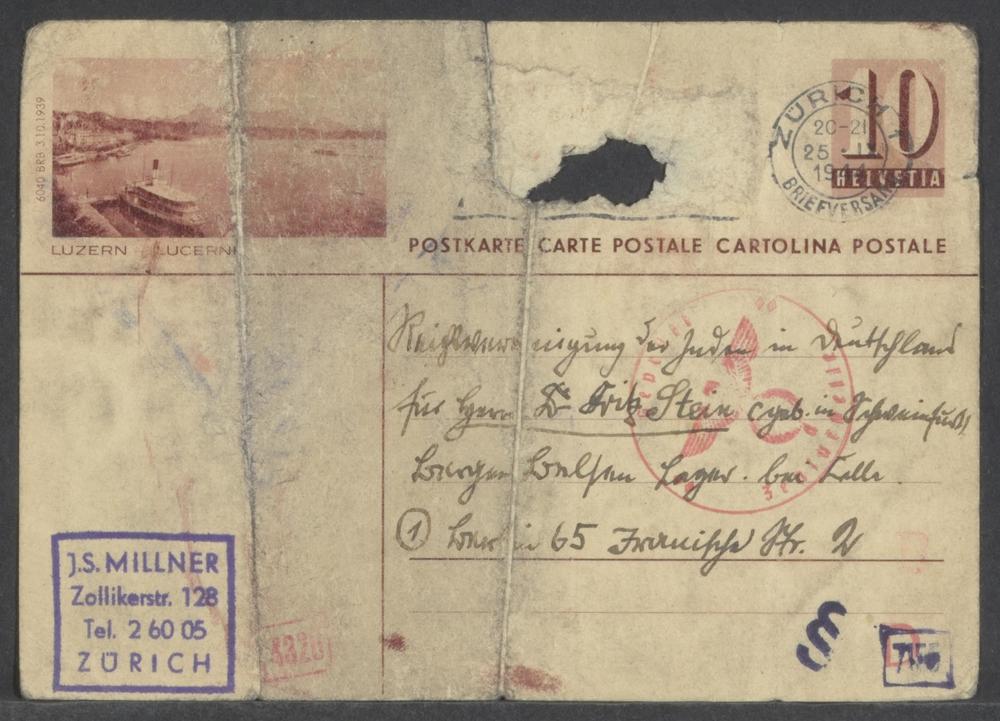 6040 BRB 3.10.1939
LUZERN - LUCERNE
10
HELVETIA
ZÜRICH 1
20-21
25
1944
BRIEFVERSAND
POSTKARTE CARTE POSTALE CARTOLINA POSTALE
Reichsvereinigung der Juden in Deutschland
für Herrn Dr Fritz Stein (geb. in Schweinfurt)
Bergen Belsen Lager. bei Celle.
① Berlin 65 Iranische Str. 2
J.S. MILLNER
Zollikerstr. 128
Tel. 2 60 05
ZÜRICH